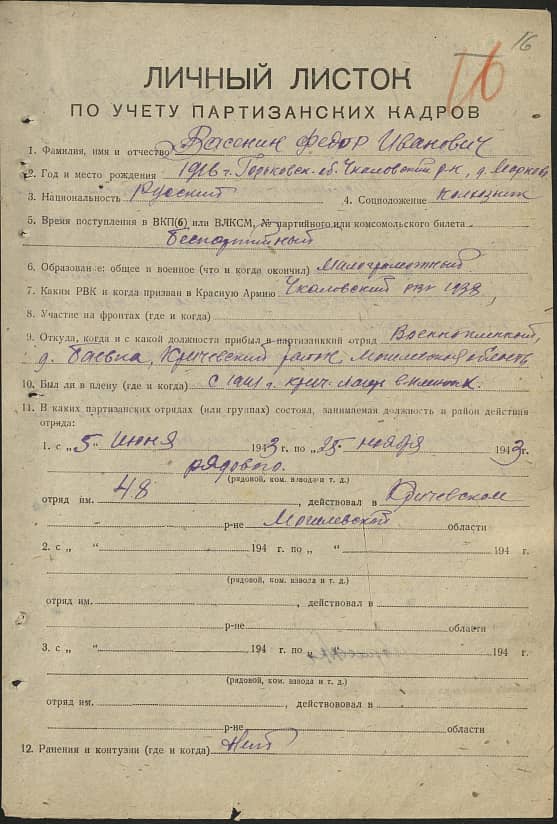 16
16
ЛИЧНЫЙ ЛИСТОК
ПО УЧЕТУ ПАРТИЗАНСКИХ КАДРОВ
1. Фамилия, имя и отчество Васонин Федор Иванович
2. Год и место рождения 1916 г. Горьковск. об. Чкаловский р-н, д.
3. Национальность Русский 4. Соцположение Колхозник
5. Время поступления в ВКП(б) или ВЛКСМ, № партийного или комсомольского билета
Беспартийный
6. Образование: общее и военное (что и когда окончил) Малограмотный
7. Каким РВК и когда призван в Красную Армию Чкаловский РВК 1938
8. Участие на фронтах (где и когда)
9. Откуда, когда и с какой должности прибыл в партизанский отряд Военнопленный,
д. Баевка, Кричевский район, Могилевская область
10. Был ли в плену (где и когда) С 1941 г. Крич.
11. В каких партизанских отрядах (или группах) состоял, занимаемая должность и район действия
отряда:
1. с „5 июня 1943 г. по „25 ноября 1943 г.
рядового.
(рядовой, ком. взвода и т. д.)
отряд им. 48, действовал в Кричевском
р-не Могилевской области
2. с „ “ 194 г. по „ “ 194 г.
(рядовой, ком. взвода и т. д.)
отряд им., действовал в
р-не области
3. с „ “ 194 г. по „ “ 194 г.
(рядовой, ком. взвода и т. д.)
отряд им., действововал в
р-не области
12. Ранения и контузии (где и когда) Нет